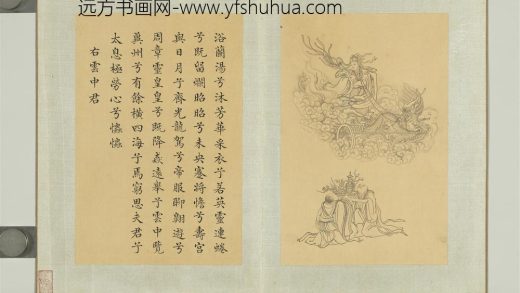 远方书画网-www.yfshuhua.com
浴蘭湯兮沐芳華采衣兮若英靈連蜷
兮既留爛昭昭兮未央蹇將憺兮壽宮
與日月兮齊光龍駕兮帝服聊翱遊兮
周章靈皇皇兮既降猋遠舉兮雲中覽
冀州兮有餘橫四海兮焉窮思夫君兮
太息極勞心兮忡忡
右雲中君